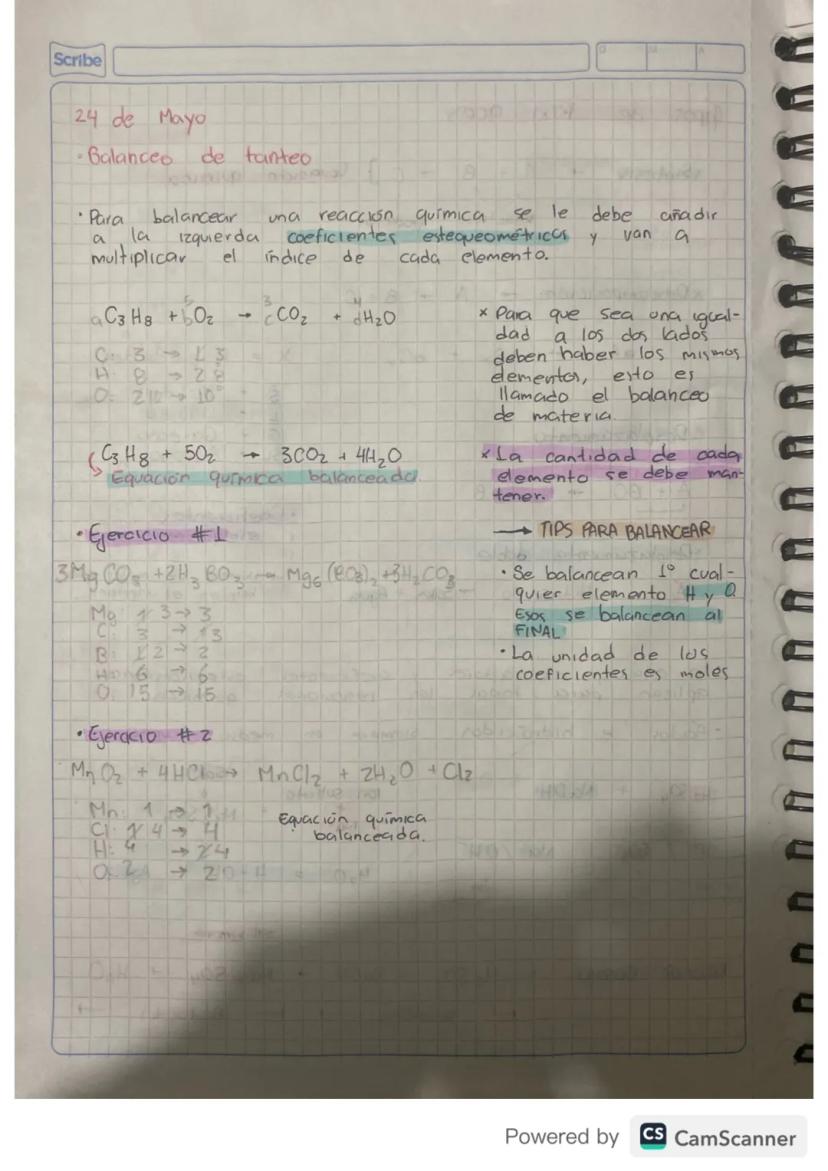 Scribe
24 de Mayo
· Balanceo de tanteo
· Para balancear una reacción química se le debe añadir
a la izquierda coeficientes estequeométricos y van a
multiplicar el índice de cada elemento.
aC3H8 + bO2 → cCO2 + dH2O
5 3 4
C: 3 → 1 3
H: 8 → 2 8
O: 2 10 → 10
C3H8 + 5O2 → 3CO2 + 4H2O
Equación química balanceada.
* Para que sea una igual-
dad a los dos lados
deben haber los mismos
elementos, esto es
llamado el balanceo
de materia
* La cantidad de cada
elemento se debe man-
tener.
· Ejercicio #1
3MgCO3 + 2H3BO3 → Mg6(BO3)2 + 3H2CO3
Mg: 1 3 → 3
C: 3 → 1 3
B: 1 2 → 2
H: 6 → 6
O: 15 → 15
→ TIPS PARA BALANCEAR
· Se balancean 1º cual-
quier elemento H y O
Esos se balancean al
FINAL
· La unidad de los
coeficientes es moles
· Ejercicio #2
MnO2 + 4HCl → MnCl2 + 2H2O + Cl2
Mn: 1 → 1
Cl: 1 4 → 4
H: 4 → 2 4
O: 2 → 2
Equación química
balanceada.
Powered by CS CamScanner